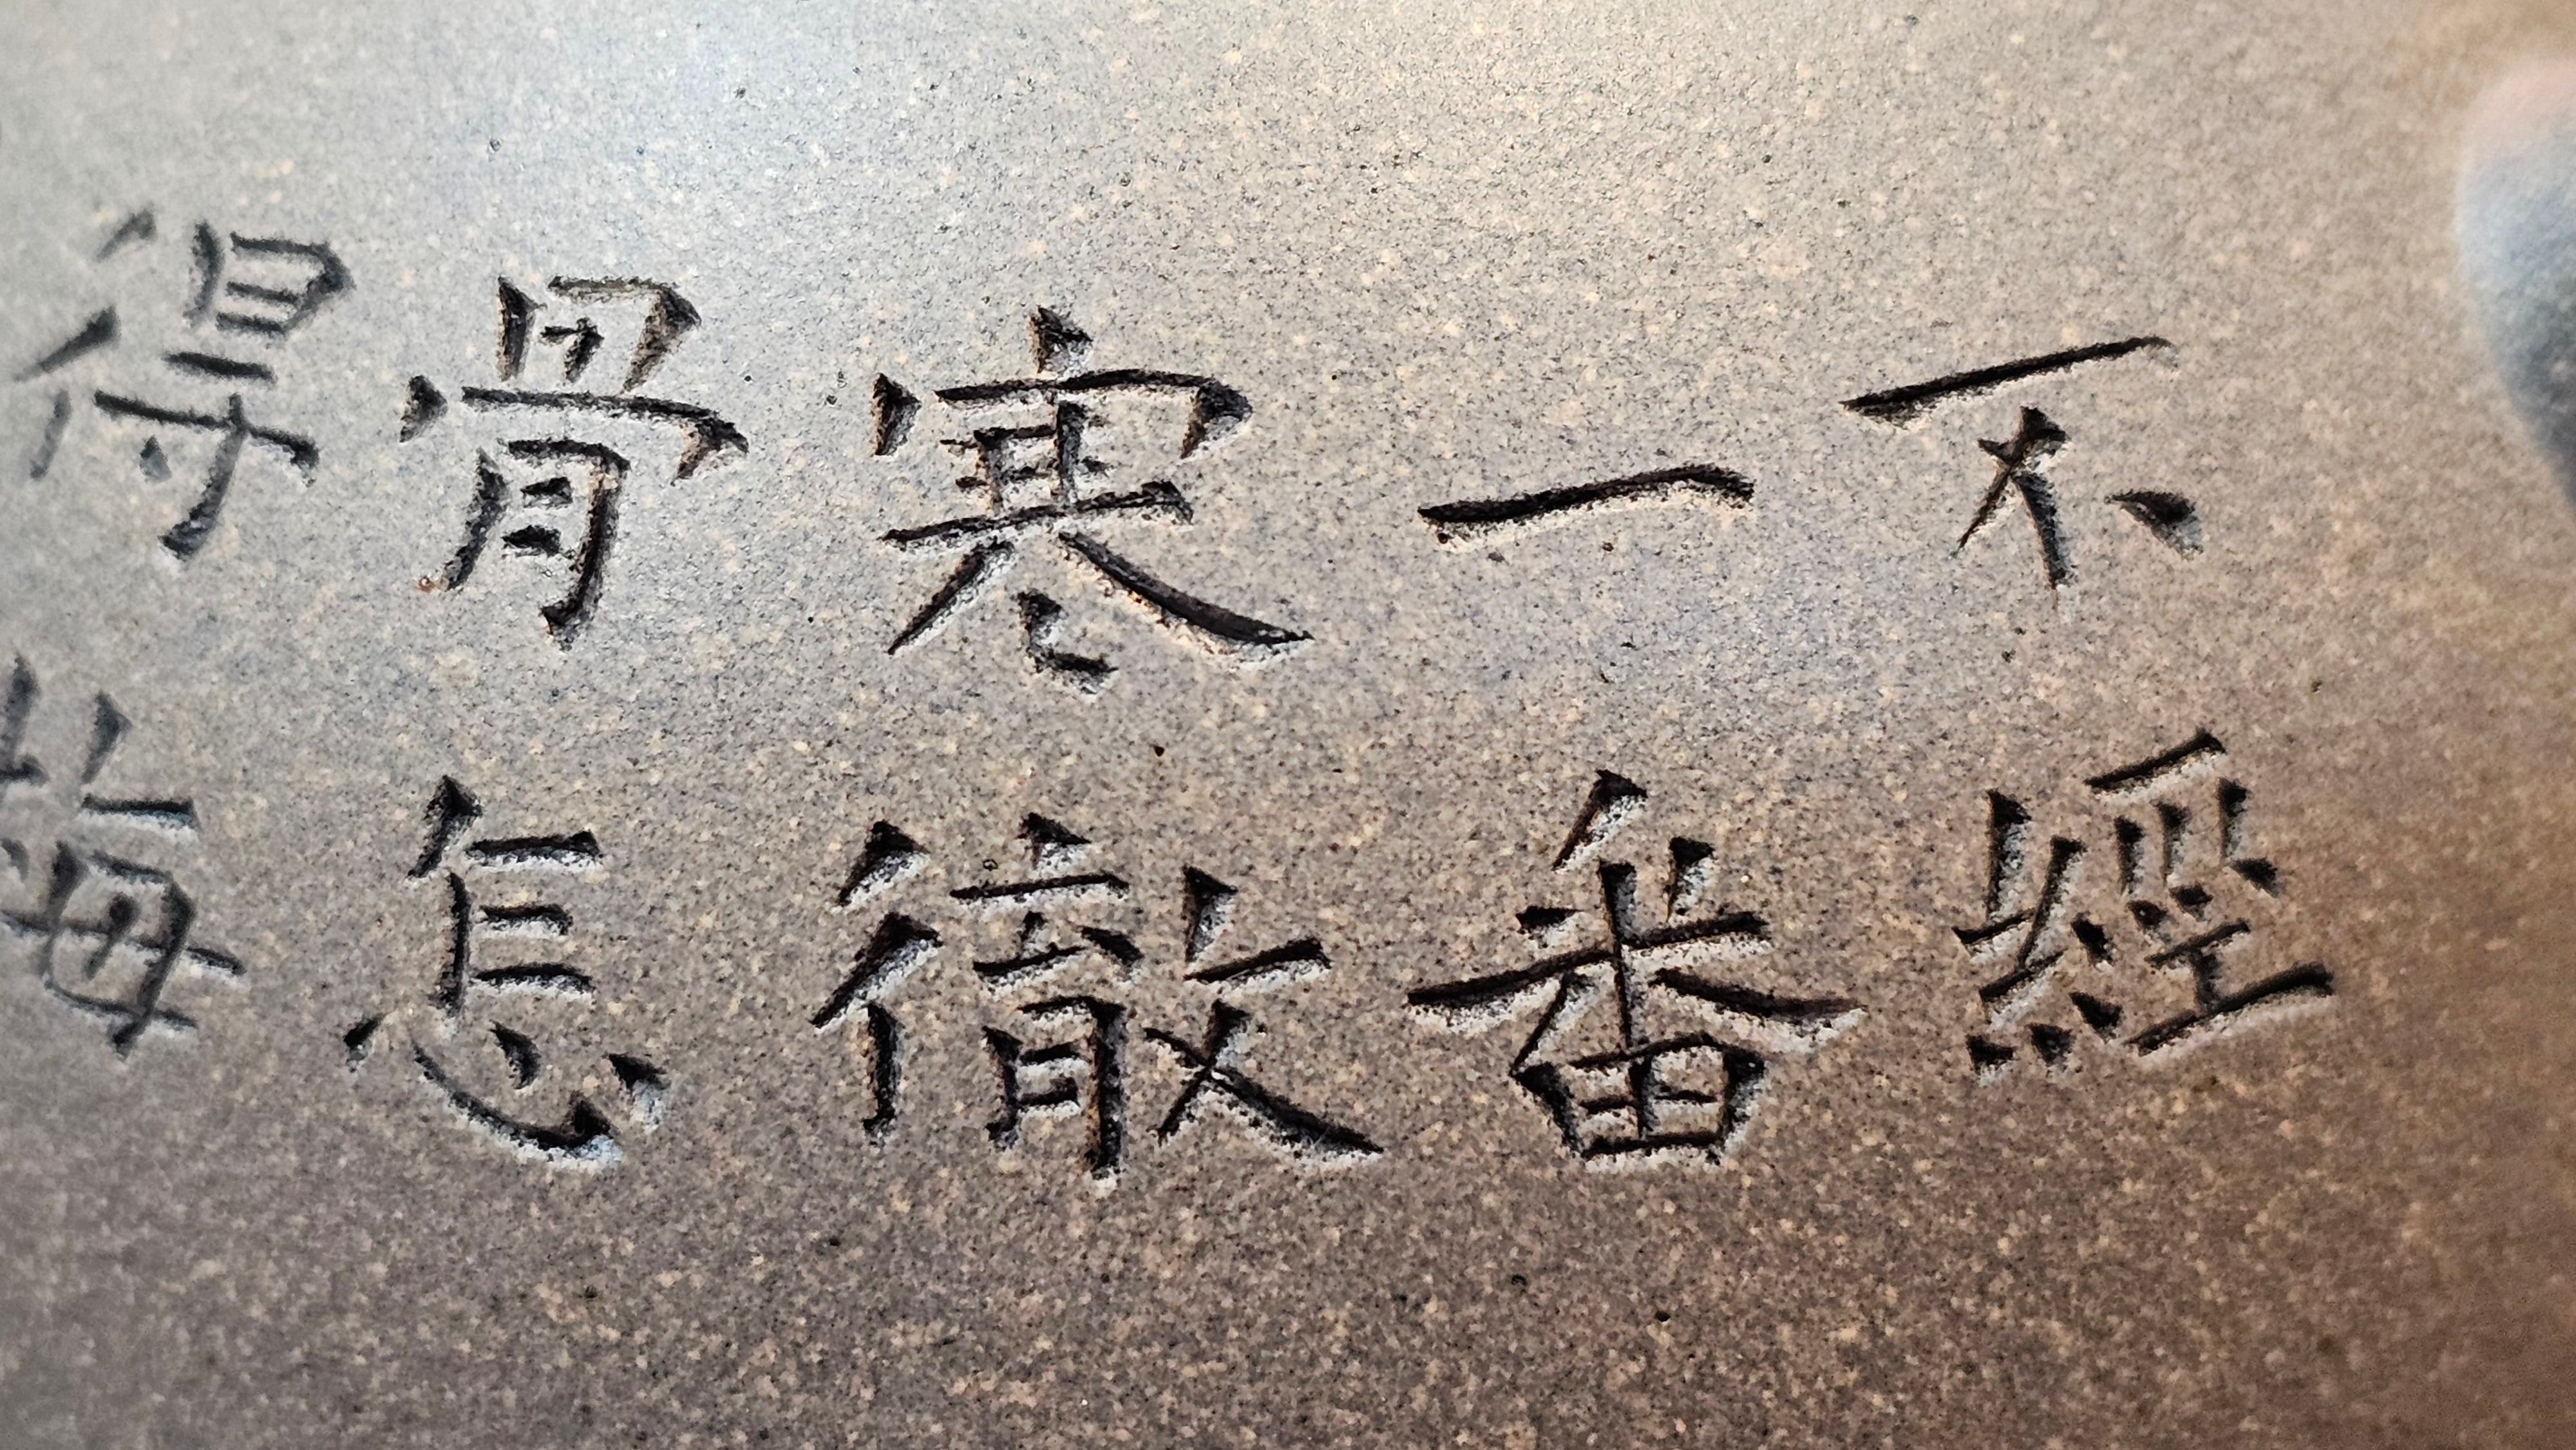 不經
一番
寒徹
骨怎
得梅